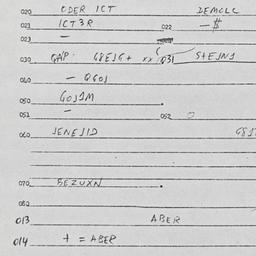 020 ODER ICT DEMOLC
021 ICT3R 022 - $
023 -
030 GAP: G8EJG+ xx 031 S+EJNJ
040 - QGOJ
050 GOJ1M
051 - 052
060 JENEJID G81
070 BEZUXN
080
013 ABER
014 + = ABER